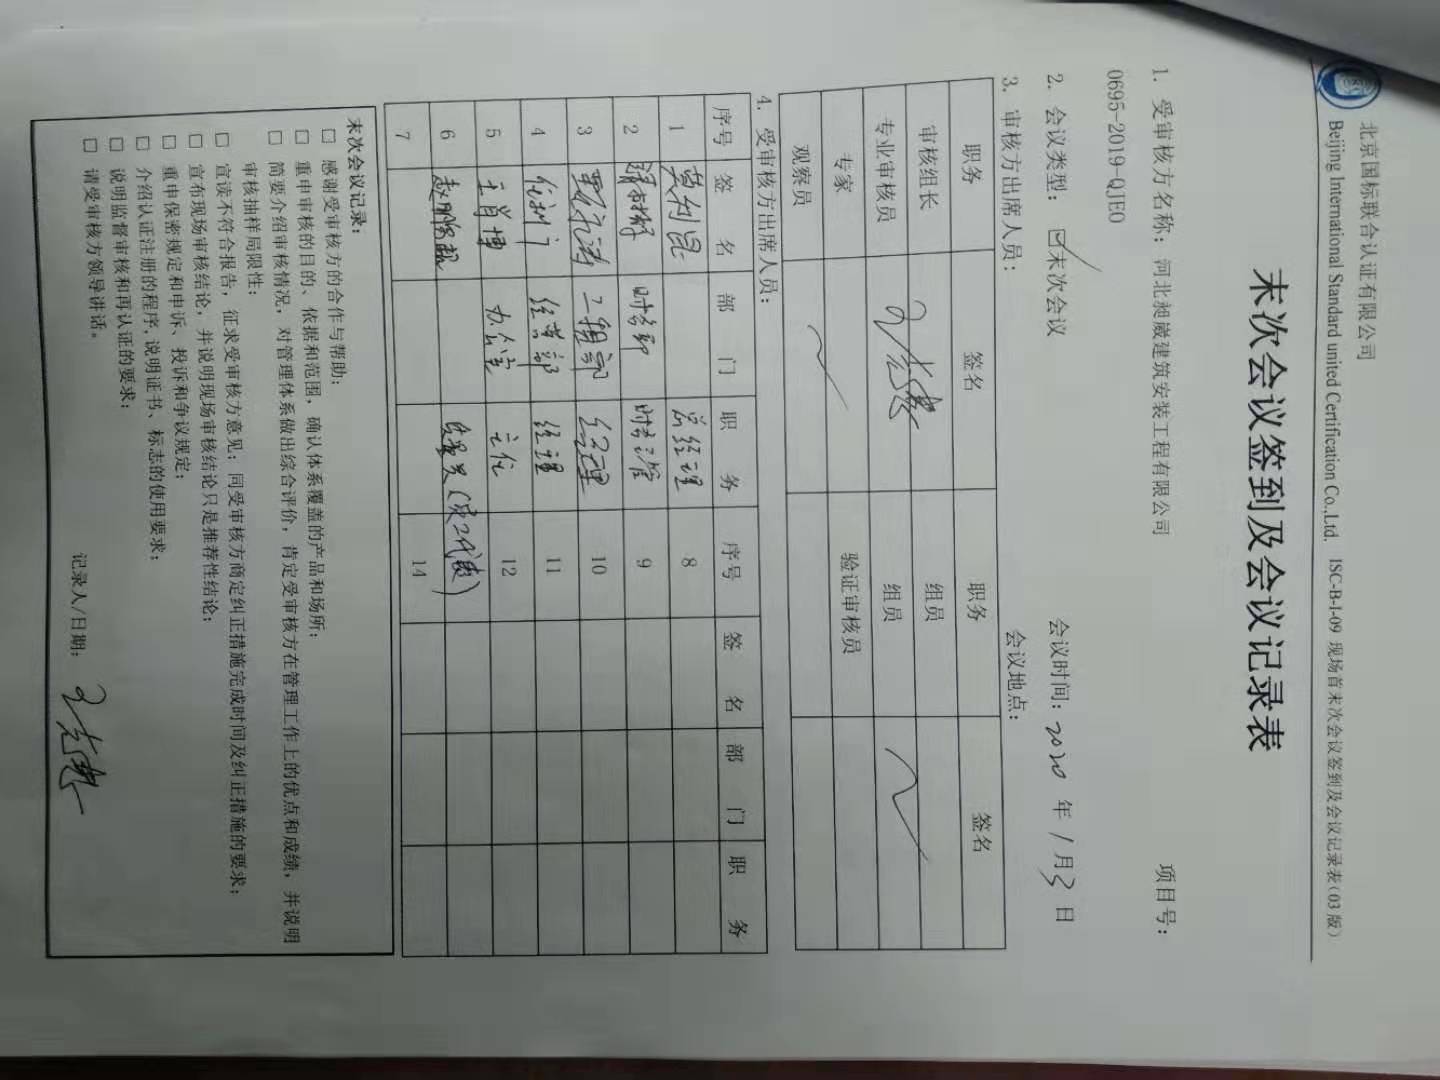 北京国标联合认证有限公司
Beijing International Standard united Certification Co.,Ltd. ISC-B-I-09 现场首末次会议签到及会议记录表(03版)
末次会议签到及会议记录表
1. 受审核方名称：河北昶崴建筑安装工程有限公司 项目号：
0695-2019-QJEO
2. 会议类型：☑末次会议 会议时间：2020 年 1 月 3 日
3. 审核方出席人员： 会议地点：
职务 签名 职务 签名
审核组长 组员
专业审核员 组员
专家 验证审核员
观察员
4. 受审核方出席人员：
序号 签 名 部 门 职 务 序号 签 名 部 门 职 务
1 总经理 8
2 财务部 财务主管 9
3 工程部 经理 10
4 经营部 经理 11
5 王肖博 办公室 主任 12
6
7 14
末次会议记录：
□ 感谢受审核方的合作与帮助；
□ 重申审核的目的、依据和范围，确认体系覆盖的产品和场所；
□ 简要介绍审核情况，对管理体系做出综合评价，肯定受审核方在管理工作上的优点和成绩，并说明
审核抽样局限性；
□ 宣读不符合报告，征求受审核方意见；同受审核方商定纠正措施完成时间及纠正措施的要求；
□ 宣布现场审核结论，并说明现场审核结论只是推荐性结论；
□ 重申保密规定和申诉、投诉和争议规定；
□ 介绍认证注册的程序，说明证书、标志的使用要求；
□ 说明监督审核和再认证的要求；
□ 请受审核方领导讲话。
记录人/日期：